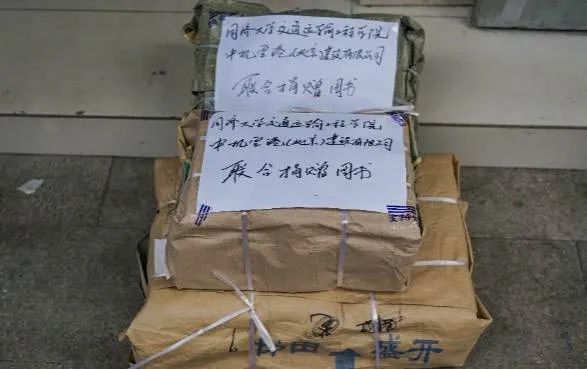 同济大学交通运输工程学院
中机空港(北京)建设有限公司
联合捐赠图书
同济大学交通运输工程学院
中机空港(北京)建设有限公司
联合捐赠图书
盛开